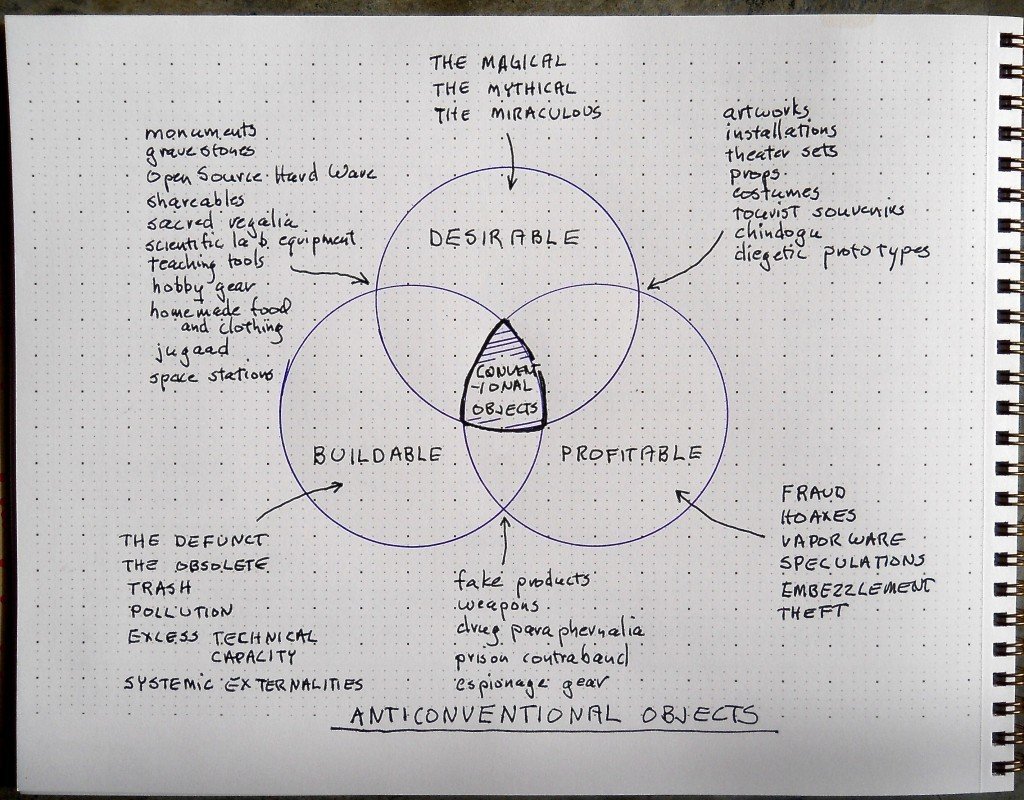 THE MAGICAL
THE MYTHICAL
THE MIRACULOUS
monuments
gravestones
Open Source Hard Ware
shareables
sacred regalia
scientific lab equipment
teaching tools
hobby gear
homemade food
and clothing
jugaad
space stations
artworks
installations
theater sets
props
costumes
tourist souvenirs
chindogu
diegetic prototypes
DESIRABLE
CONVENT
-IONAL
OBJECTS
BUILDABLE
PROFITABLE
THE DEFUNCT
THE OBSOLETE
TRASH
POLLUTION
EXCESS TECHNICAL
CAPACITY
SYSTEMIC EXTERNALITIES
fake products
weapons
drug paraphernalia
prison contraband
espionage gear
FRAUD
HOAXES
VAPORWARE
SPECULATIONS
EMBEZZLEMENT
THEFT
ANTICONVENTIONAL OBJECTS